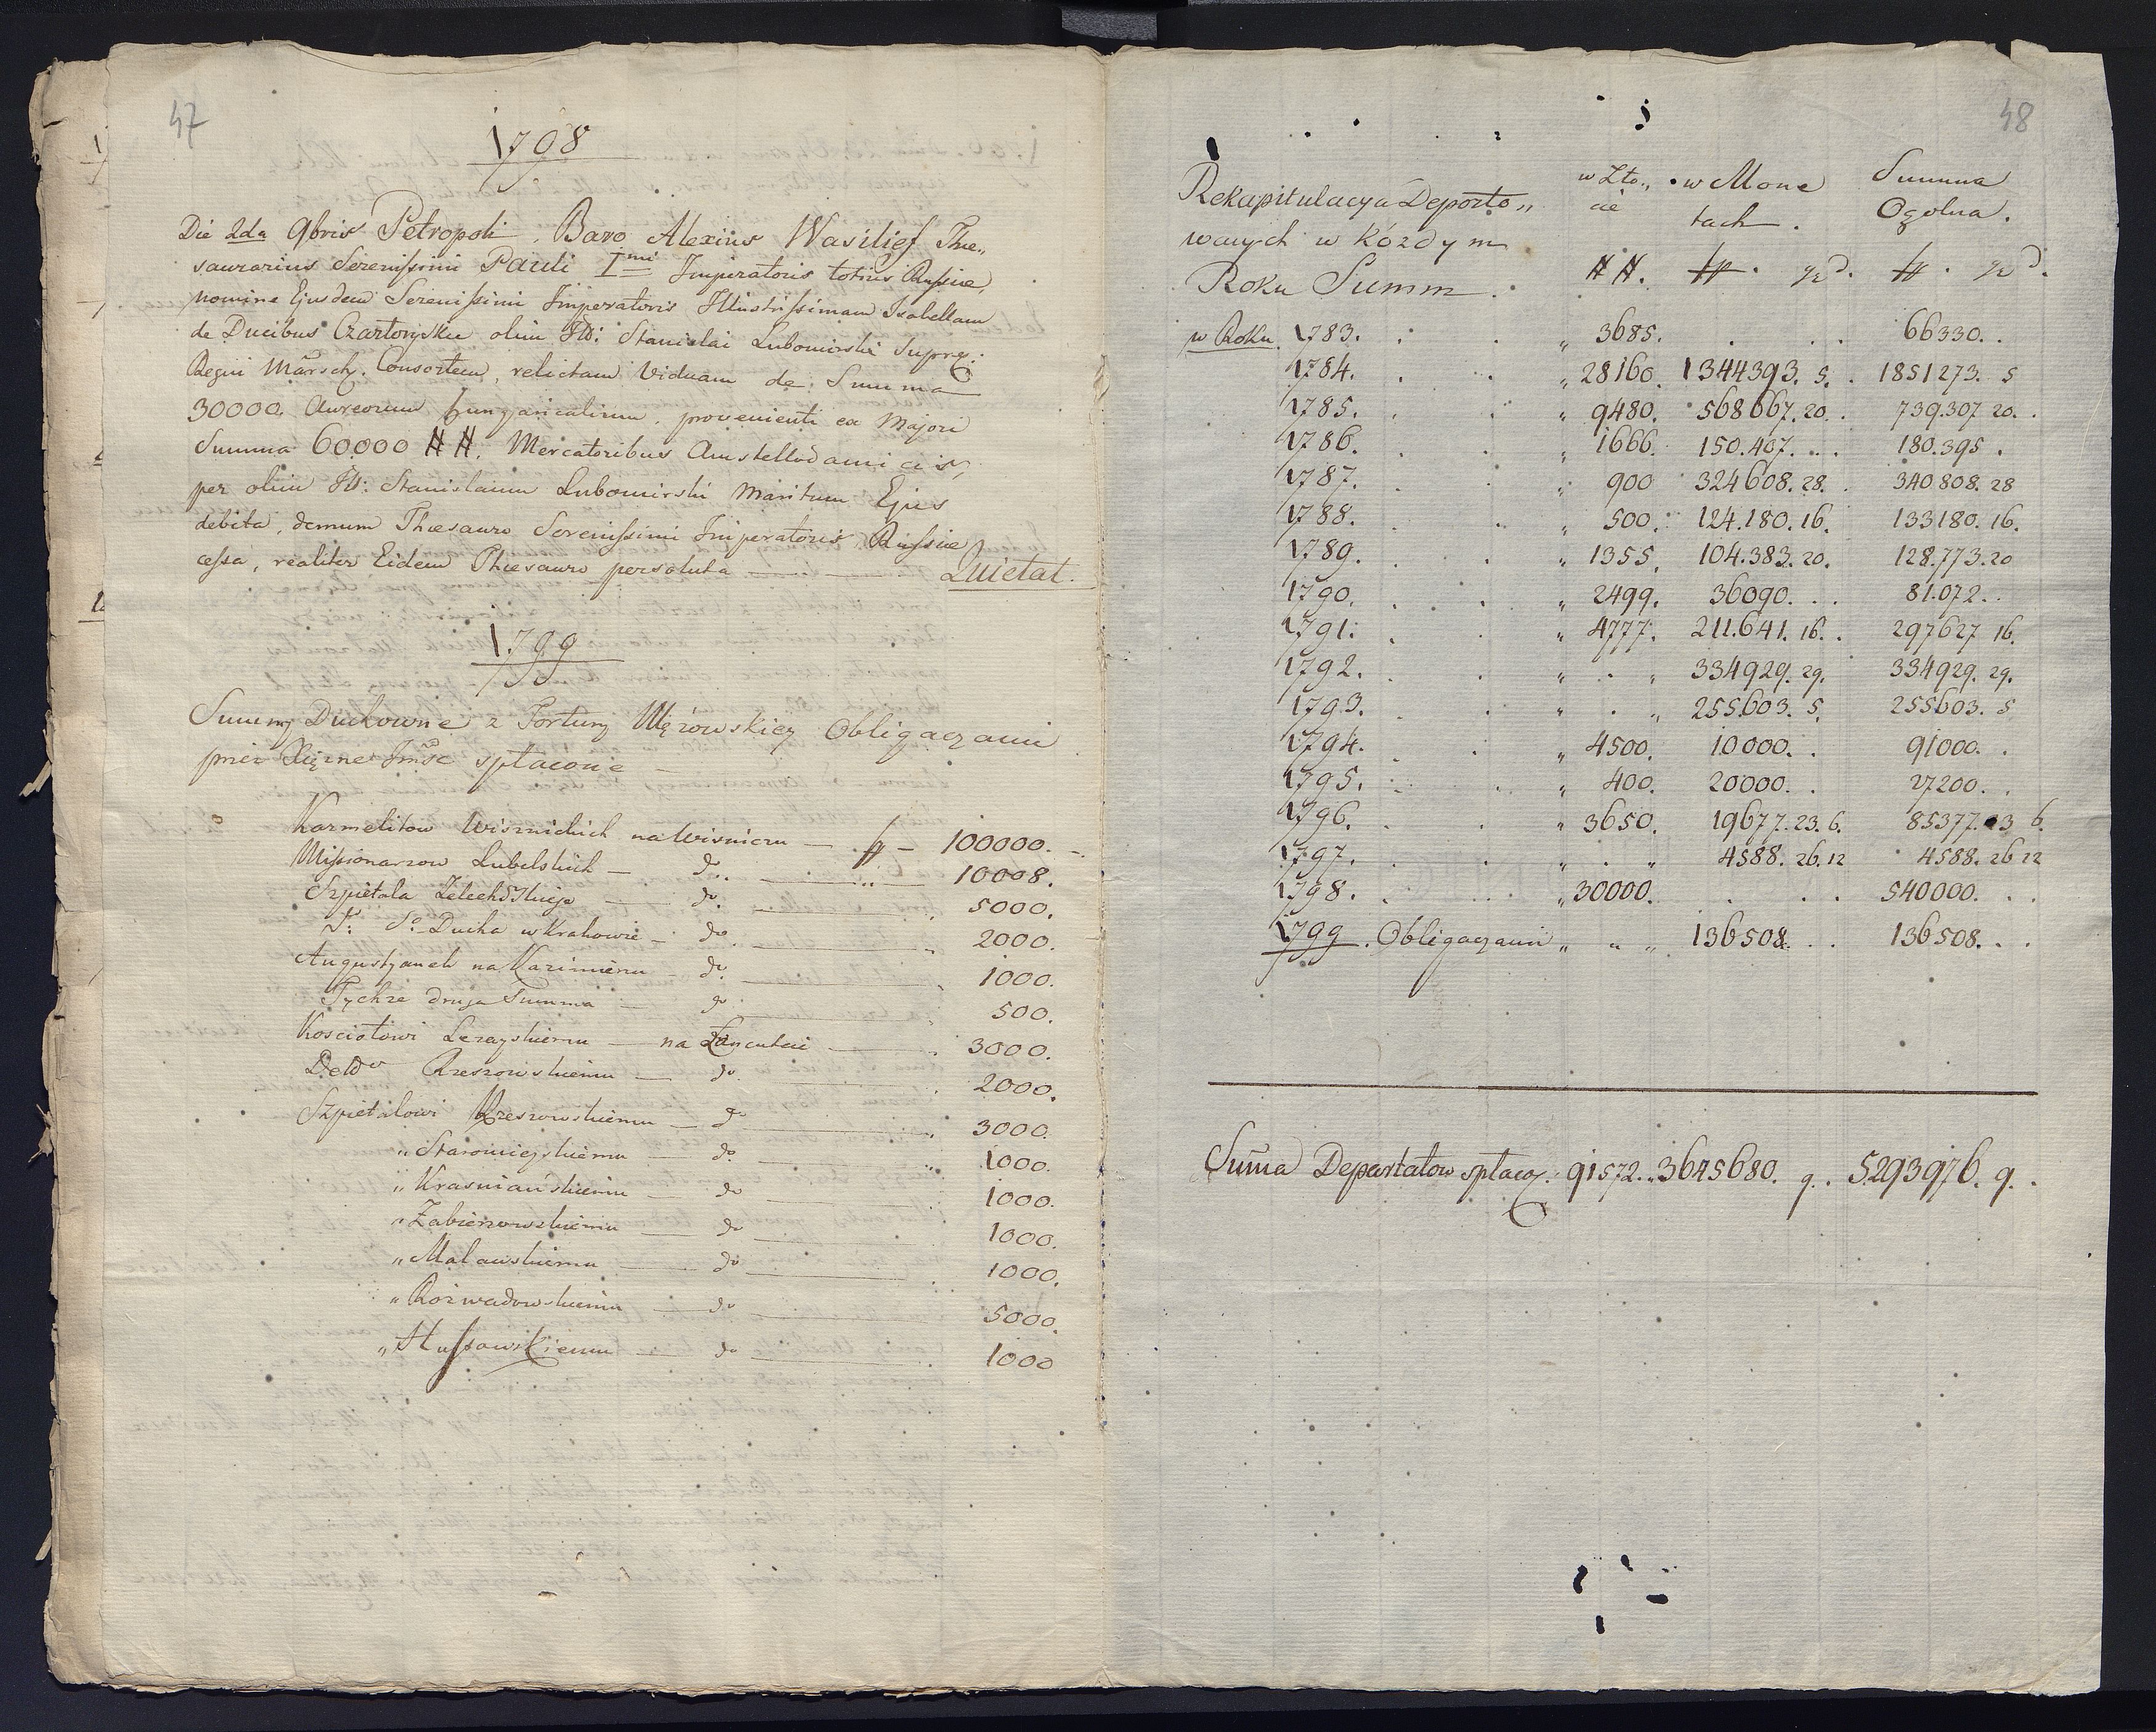 47
1798
Die 2da 9bris Petropoli. Baro Alexius Wasilief The„
saurarius Serenissimi Pauli Imi Imperatoris totius Russiæ
nomine Ejusdem Serenissimi Imperatoris Illustrissimam Isabellam
de Ducibus Czartoryskie olim Stanislai Lubomirski Supre:
Regni Marsch. Consortem, relictam Viduam de Summa
30000. Aureorum hungaricalium, provenienti ex Majori
Summa 60.000 ##. Mercatoribus Amstellodamicis,
per olim Stanislaum Lubomirski Maritum Ejus
debita, demum Thesauro Serenissimi Imperatoris Russiæ
cessa, realiter Eidem Thesauro persoluta — Quietat.
1799
Summy Duchowne z Fortuny Mężowskiey Obligacyami
przez Xiężne Jmśc spłacone —
Karmelitow Wisnickich na Wisniczu — — 100000.
Missionarzow Lubelskich — do. — 10008.
Szpitala Zelechowskiego — do. — 5000.
So Ducha w Krakowie — do. — 2000.
Augustyanek na Kazimierzu — do. — 1000.
Tychze druga Summa — do — 500.
Kosciołowi Lezayskiemu — na Łancutcie — 3000.
Detto Rzeszowskiemu — do. — 2000.
Szpitalowi Rzeszowskiemu — do — 3000.
„ Staromieyskiemu — do. — 1000.
„ Krasnianskiemu — do — 1000.
„ Zabierzowskiemu — do — 1000.
„ Malawskiemu — do — 1000.
„ Rozwadowskiemu — do — 5000.
„ Hussowskiemu — do — 1000
48
Rekapitulacya Deporto„ w Zło„ w Mone Summa
wanych w Kożdym cie tach. Ogolna.
Roku Summ. ##. gr d. gr d.
w Roku 1783. „ 3685. 66330.
1784. „ 28160. 1344393. 5. 1851273. 5
1785. „ 9480. 568667. 20. 739.307 20.
1786. „ 1666. 150.407. 180.395.
1787. „ 900 324608. 28. 340.808. 28
1788. „ 500. 124.180. 16. 133180. 16.
1789. „ 1355. 104.383. 20. 128.773. 20
1790. „ 2499. 36090. 81.072.
1791. „ 4777. 211.641. 16. 297627 16.
1792. „ „ 334929. 29. 334929. 29.
1793. „ „ 255.603. 5. 255603. 5
1794. „ 4500. 10000. 91000.
1795. „ 400. 20000. 27200.
1796. „ 3650. 19677. 23. 6. 85377. 23 6.
1797. „ „ 4588. 26. 12 4588. 26 12
1798. „ 30000. 540000.
1799. Obligacyami „ „ „ 136508. 136508.
Suma Departatow spłacoy: 91572. „ 3645680. 9. 5293976. 9.